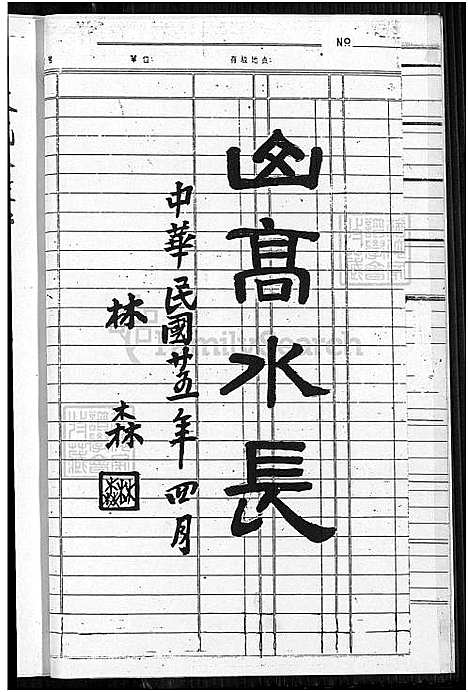 NO
單位:
存放地点:
山高水長
中華民國廿五年四月
林森
FamilySearch